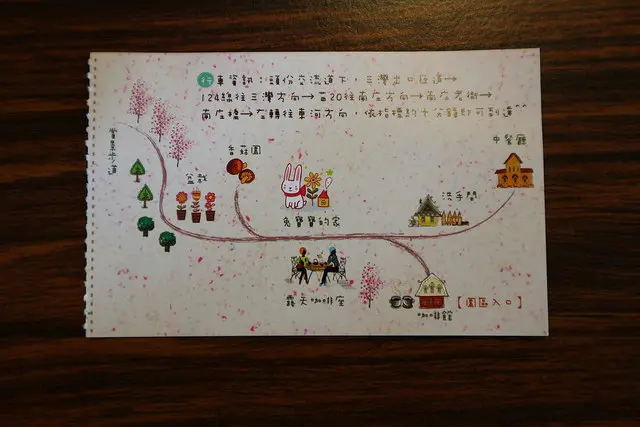 行車資訊:頭份交流道下,三灣出口匝道→
124線往三灣方向→苗20往南庄方向→南庄老街→
南庄橋→左轉往東河方向,依指標約十分鐘即可到達^^
賞景步道
香菇園
中餐廳
盆栽
洗手間
兔寶寶的家
露天咖啡座
咖啡館
【園區入口】